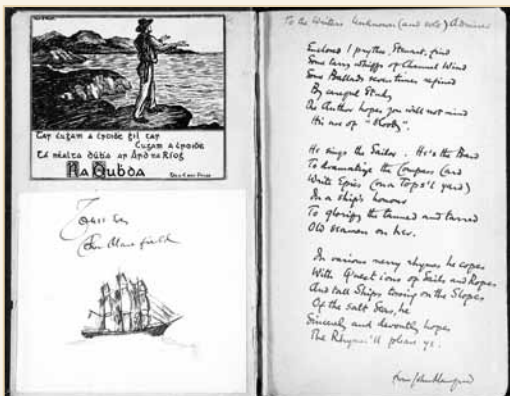 Tar ċugam a ċroiḋe ġil tar
Ċugam a ċroiḋe
Tá néalta duḃa ar Árd na Ríoġ
To the Writers Unknown (and vote) Admirer
Enclosed I prythee, Stewart, find
Some tarry whiffs of Channel Wind
Some Ballads seven times refined
By careful Study
The Author hopes you will not mind
His use of "bloody".
He sings the Sailor. He's the Bard
To dramatize the Compass Card
Write Epics (on a Tops'l yard)
In a ship's honour
To glorify the tanned and tarred
Old seamen on her.
In various merry rhymes he copes
With Questions of Sails and Ropes
And tall Ships tossing on the Slopes
Of the salt Seas, he
Sincerely and devoutly hopes
The Rhymes'll please ye.
from John Masefield
Yours
John Masefield